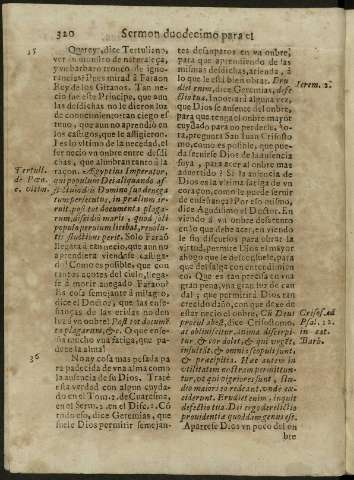 320 Sermon duodecimo para el
35
Quereys, dice Tertuliano,
ver vn monstro de naturaleça,
y vn barbaro tronco de igno-
rancias? Pues mirad à Faraon
Rey de los Gitanos. Tan ne-
cio fue este Principe, que aun
las desdichas no le dieron luz
de conocimiento: tan ciego es-
tuuo, que aun no aprendiò en
los castigos, que le afligieron.
Es lo vltimo de la necedad, el
ser necio vn onbre entre desdi-
chas, que alunbran tanto à la
raçon. Ægyptius Imperator,
Tertull.
qui populum Dei aliquando af-
tum persecutus, in prælium ir-
ruit, post tot documenta plaga-
rum, discidio maris, quod soli
populo peruium licebat, reuolu-
tis fluctibus perijt. Solo Faraò
llegarà à ser necio, que aun no
aprendiera viendose castiga-
do! Como es posible, que con
tantos açotes del cielo, llega-
se à morir anegado Faraon?
Ha cosa semejante à milagro,
dice el Doctor, que las ense-
ñanças de las eridas no den
luz à vn onbre! Post tot documen-
ta plagarum, &c. Que enseña
mucho vna fatiga, que pa-
dece la alma!
36
No ay cosa mas pesada pa
ra padecida de vna alma como
la ausencia de su Dios. Tratè
esta verdad con algun cuyda-
do en el Tom. 2. de Cuaresma,
en el Serm. 2. en el Disc. 2. Cō
todo eso, dice Geremias, que
suele Dios permitir semejan-
tes desanparos en vn onbre,
para que aprendiendo de las
mismas desdichas, atienda, à
lo que le està bien obrar. Eru-
diet enim, dice Geremias, defe-
Ierem. 2.
ctio tua. Inportarà alguna vez,
que Dios se ausente del onbre,
para que tenga el onbre mayor
cuydado para no perderle. Ao-
ra, pregunta San Iuan Crisosto-
mo, como es posible, que pue-
da seruirse Dios de la ausencia
suya, para acer al onbre mas
aduertido? Si la ausencia de
Dios es la vltima fatiga de vn
coraçon, como le puede seruir
de enseñança? Por eso mismo,
dice Agudisimo el Doctor. En
viendo à vn onbre desatento
en lo que debe acer, en viendo
le sin discursos para obrar la
virtud, permite Dios el mayor
ahogo que le desconsuele, para
que del salga con entendimien
to. Que es tan precisa en vna
gran pena, vna gran luz de cau
dal; que permitirà Dios tan
crecido daño, con que dexe de
estar necio el onbre. Cū Deus
Crisost. ad
procul abest, dice Crisostomo,
Psal. 12.
ac obliuiscitur. Anima discerpi-
tur & cor dolet, & qui vrget,
in cat.
insultat, & omnia scopuli sunt,
Barb.
& præcipitia. Hæc autem in
vtilitatem nostram permittun-
tur, vt qui pigriores sunt, stu-
dio maiori eo redeant, vnde ex-
ciderunt. Erudiet enim, inquit
defectio tua. Dei ergo derelictio
prouidentiæ quoddam genus est.
Apartese Dios vn poco del on
bre